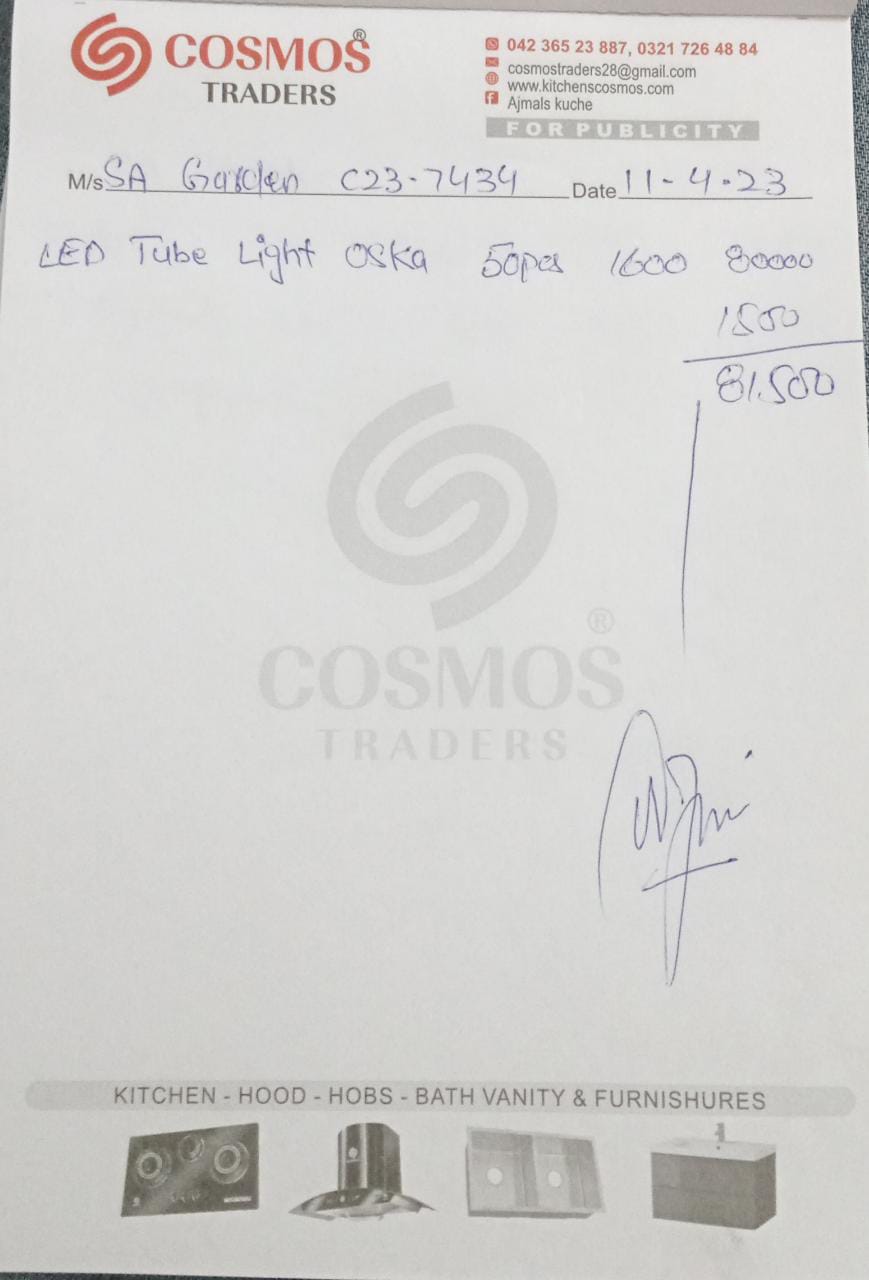 COSMOS®
TRADERS
042 365 23 887, 0321 726 48 84
cosmostraders28@gmail.com
www.kitchenscosmos.com
Ajmals kuche
FOR PUBLICITY
M/s SA Garden C23-7434 Date 11-4-23
LED Tube Light OSKA 50pcs 1600 80000
1500
81.500
COSMOS®
TRADERS
KITCHEN - HOOD - HOBS - BATH VANITY & FURNISHURES